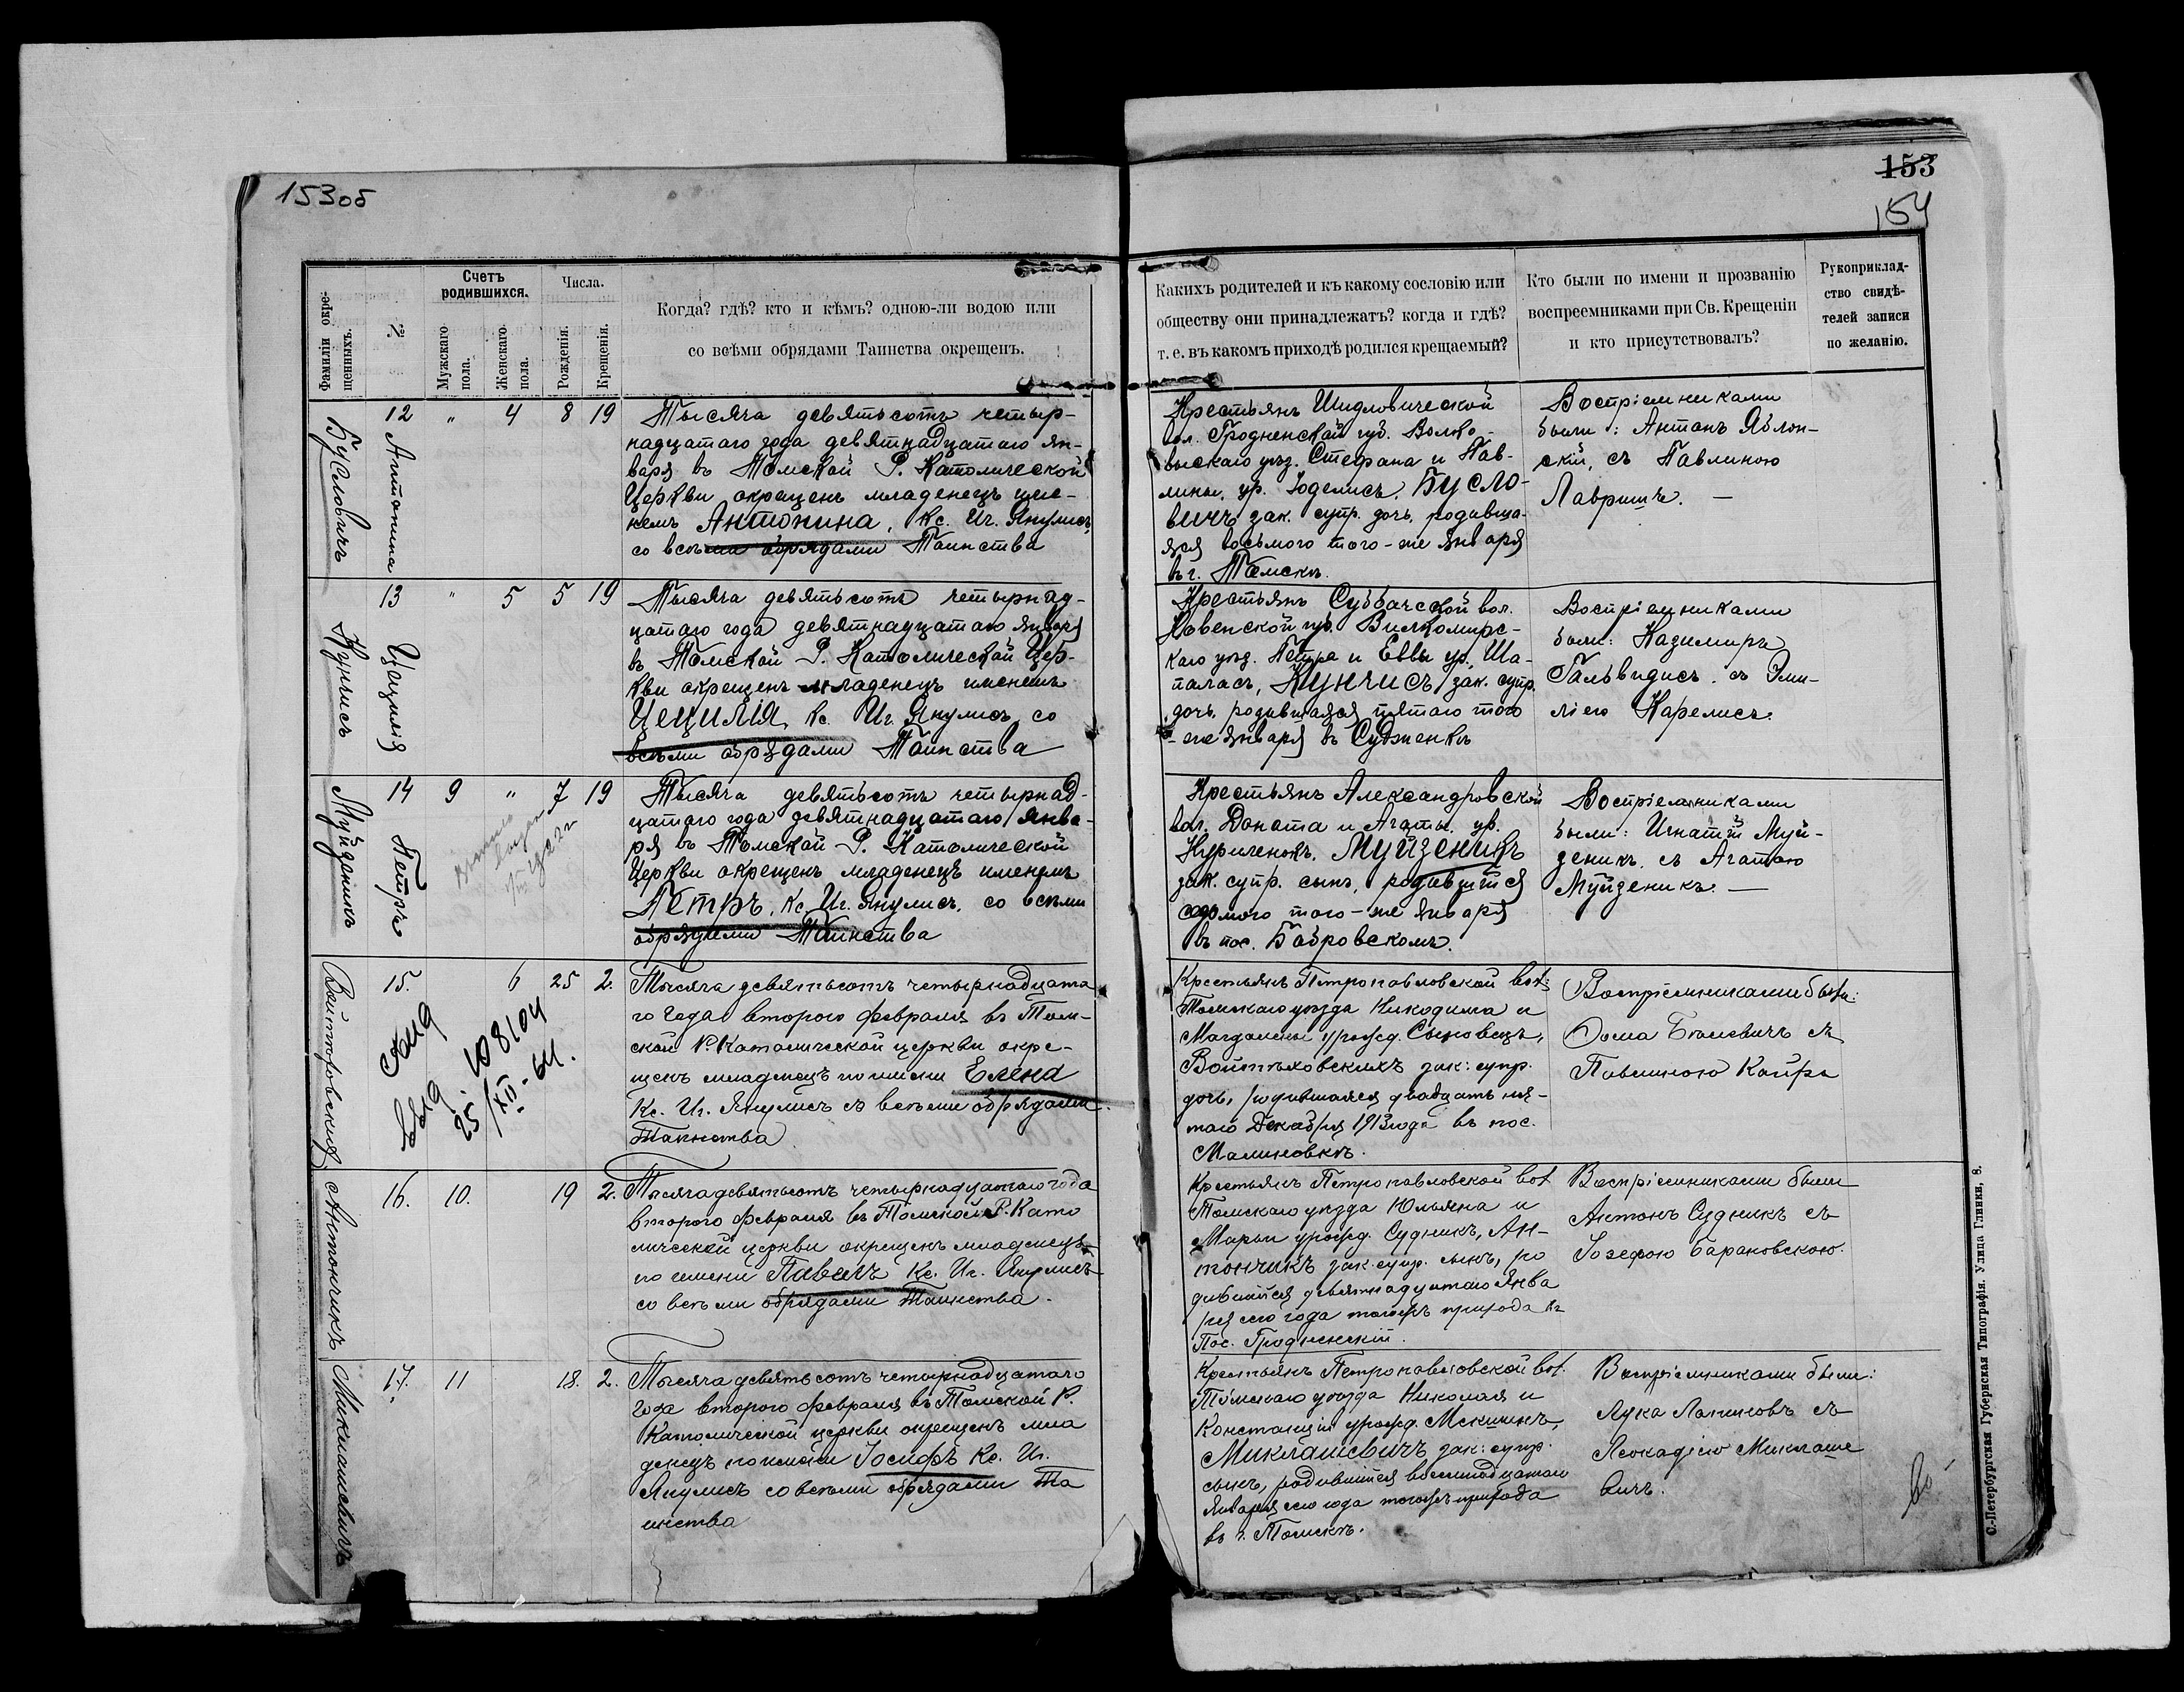 153об
153
154
Фамиліи окре-
щенныхъ.
№
Счетъ
родившихся.
Мужскаго
пола.
Женскаго
пола.
Числа.
Рожденія.
Крещенія.
Когда? гдѣ? кто и кѣмъ? одною-ли водою или
со всѣми обрядами Таинства окрещенъ.
Какихъ родителей и къ какому сословію или
обществу они принадлежатъ? когда и гдѣ?
т. е. въ какомъ приходѣ родился крещаемый?
Кто были по имени и прозванію
воспреемниками при Св. Крещеніи
и кто присутствовалъ?
Рукоприклад-
ство свидѣ-
телей записи
по желанію.
Бусловичъ
12
Антонина
" 4 8 19
Тысяча девятьсотъ четыр-
надцатаго года девятнадцатаго ян-
варя въ Томской Р. Католической
Церкви окрещенъ младенецъ име-
немъ Антонина, Кс. Иг. Янулисъ,
со всѣми обрядами Таинства
Крестьянъ Шидловической
вол. Гродненской губ. Волко-
выскаго уѣз. Стефана и Пав-
лины, ур. Юделисъ, Бусло-
вичъ зак. супр. дочь, родивша-
яся восьмого того-же января
въ г. Томскѣ.
Воспріемниками
были: Антонъ Яблон-
скій, съ Павлиною
Лавришъ. —
Кунчисъ
13
Цецилія
" 5 5 19
Тысяча девятьсотъ четырнад-
цатаго года девятнадцатаго января
въ Томской Р. Католической Цер-
кви окрещенъ младенецъ именемъ
Цецилія, Кс. Иг. Янулисъ, со
всѣми обрядами Таинства
Крестьянъ Суббачской вол.
Ковенской губ. Вилкомирс-
каго уѣз. Петра и Еввы ур. Ша-
паласъ, Кунчисъ, зак. супр.
дочь, родившаяся пятаго того
-же января въ Судженкѣ
Воспріемниками
были: Казимиръ
Гальвидисъ, съ Эми-
ліею Карелисъ.
Муйзеникъ
14
Петръ
9 " 7 19
Тысяча девятьсотъ четырнад-
цатаго года девятнадцатаго Янва-
ря въ Томской Р. Католической
Церкви окрещенъ младенецъ именемъ
Петръ, Кс. Иг. Янулисъ, со всѣми
обрядами Таинства
Крестьянъ Александровской
вол. Доната и Агаты, ур.
Куриленокъ, Муйзеникъ
зак. супр. сынъ, родившійся
седьмого того-же января
въ пос. Бобровскомъ.
Воспріемниками
были: Игнатій Муй-
зеникъ, съ Агатою
Муйзеникъ. —
Войтѣховская
15.
6 25 2.
25 108104
/XII-64.
Тысяча девятьсотъ четырнадцата
го года второго февраля въ Том-
ской Р. Католической церкви окре-
щенъ младенецъ по имени Елена
Кс. Иг. Янулисъ съ всѣми обрядами
Таинства
Крестьянъ Петропавловской вол.
Томскаго уѣзда Никодима и
Магдалены урожд. Сыковецъ,
Войтѣховскихъ зак: супр.
дочь, родившаяся двадцать пя-
таго Декабря 1913 года въ пос.
Малиновкѣ.
Воспріемниками были:
Ѳома Бѣлевичъ съ
Павлиною Кайра
Антончикъ
16.
10. 19 2.
Тысяча девятьсотъ четырнадцатаго года
второго Февраля въ Томской Р. Като
лической церкви окрещенъ младенецъ
по имени Павелъ Кс. Иг. Янулисъ
со всѣми обрядами Таинства.
Крестьянъ Петропавловской вол
Томскаго уѣзда Юльяна и
Марьи урожд. Судникъ, Ан-
тончикъ зак. супр. сынъ, ро
дившійся девятнадцатаго Янва
ря сего года тогожъ прихода въ
Пос. Гродненскій.
Воспріемниками были
Антонъ Судникъ съ
Іозефою Барановскою.
Миклашевичъ
17.
11 18. 2.
Тысяча девятьсотъ четырнадцатаго
года второго Февраля въ Томской Р.
Католической церкви окрещенъ мла
денецъ по имени Іосифъ Кс. Иг.
Янулисъ со всѣми обрядами Та
инства
Крестьянъ Петропавловской вол.
Томскаго уѣзда Николая и
Констанціи урожд. Мекшинъ,
Миклашевичъ зак: супр.
сынъ, родившійся восемнадцатаго
Января сего года тогожъ прихода
въ г. Томскѣ.
Воспріемниками были:
Лука Лапиковъ съ
Леокадіею Миклаше
вичъ.
С.-Петербургская Губернская Типографія. Улица Глинки, 8.